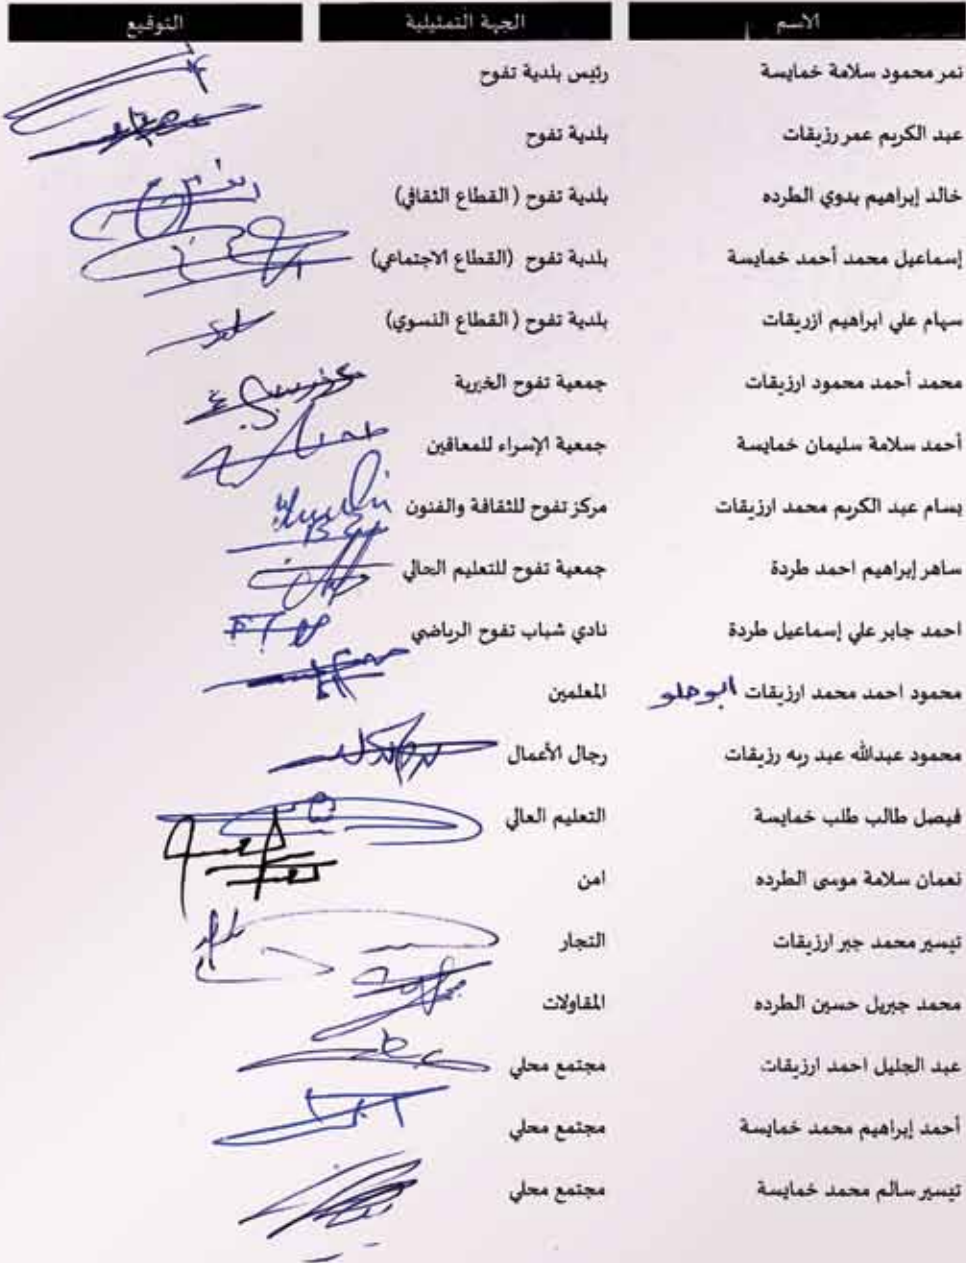 الاسم الجهة التمثيلية التوقيع
نمر محمود سلامة خمايسة رئيس بلدية تفوح
عبد الكريم عمر رزيقات بلدية تفوح
خالد إبراهيم بدوي الطرده بلدية تفوح ( القطاع الثقافي)
إسماعيل محمد أحمد خمايسة بلدية تفوح (القطاع الاجتماعي)
سهام علي ابراهيم ازريقات بلدية تفوح ( القطاع النسوي)
محمد أحمد محمود ارزيقات جمعية تفوح الخيرية
أحمد سلامة سليمان خمايسة جمعية الإسراء للمعاقين
بسام عبد الكريم محمد ارزيقات مركز تفوح للثقافة والفنون
ساهر إبراهيم احمد طردة جمعية تفوح للتعليم العالي
احمد جابر علي إسماعيل طردة نادي شباب تفوح الرياضي
محمود احمد محمد ارزيقات ابو حلو المعلمين
محمود عبدالله عبد ربه رزيقات رجال الأعمال
فيصل طالب طلب خمايسة التعليم العالي
نعمان سلامة موسى الطرده امن
تيسير محمد جبر ارزيقات التجار
محمد جبريل حسين الطرده المقاولات
عبد الجليل احمد ارزيقات مجتمع محلي
أحمد إبراهيم محمد خمايسة مجتمع محلي
تيسير سالم محمد خمايسة مجتمع محلي